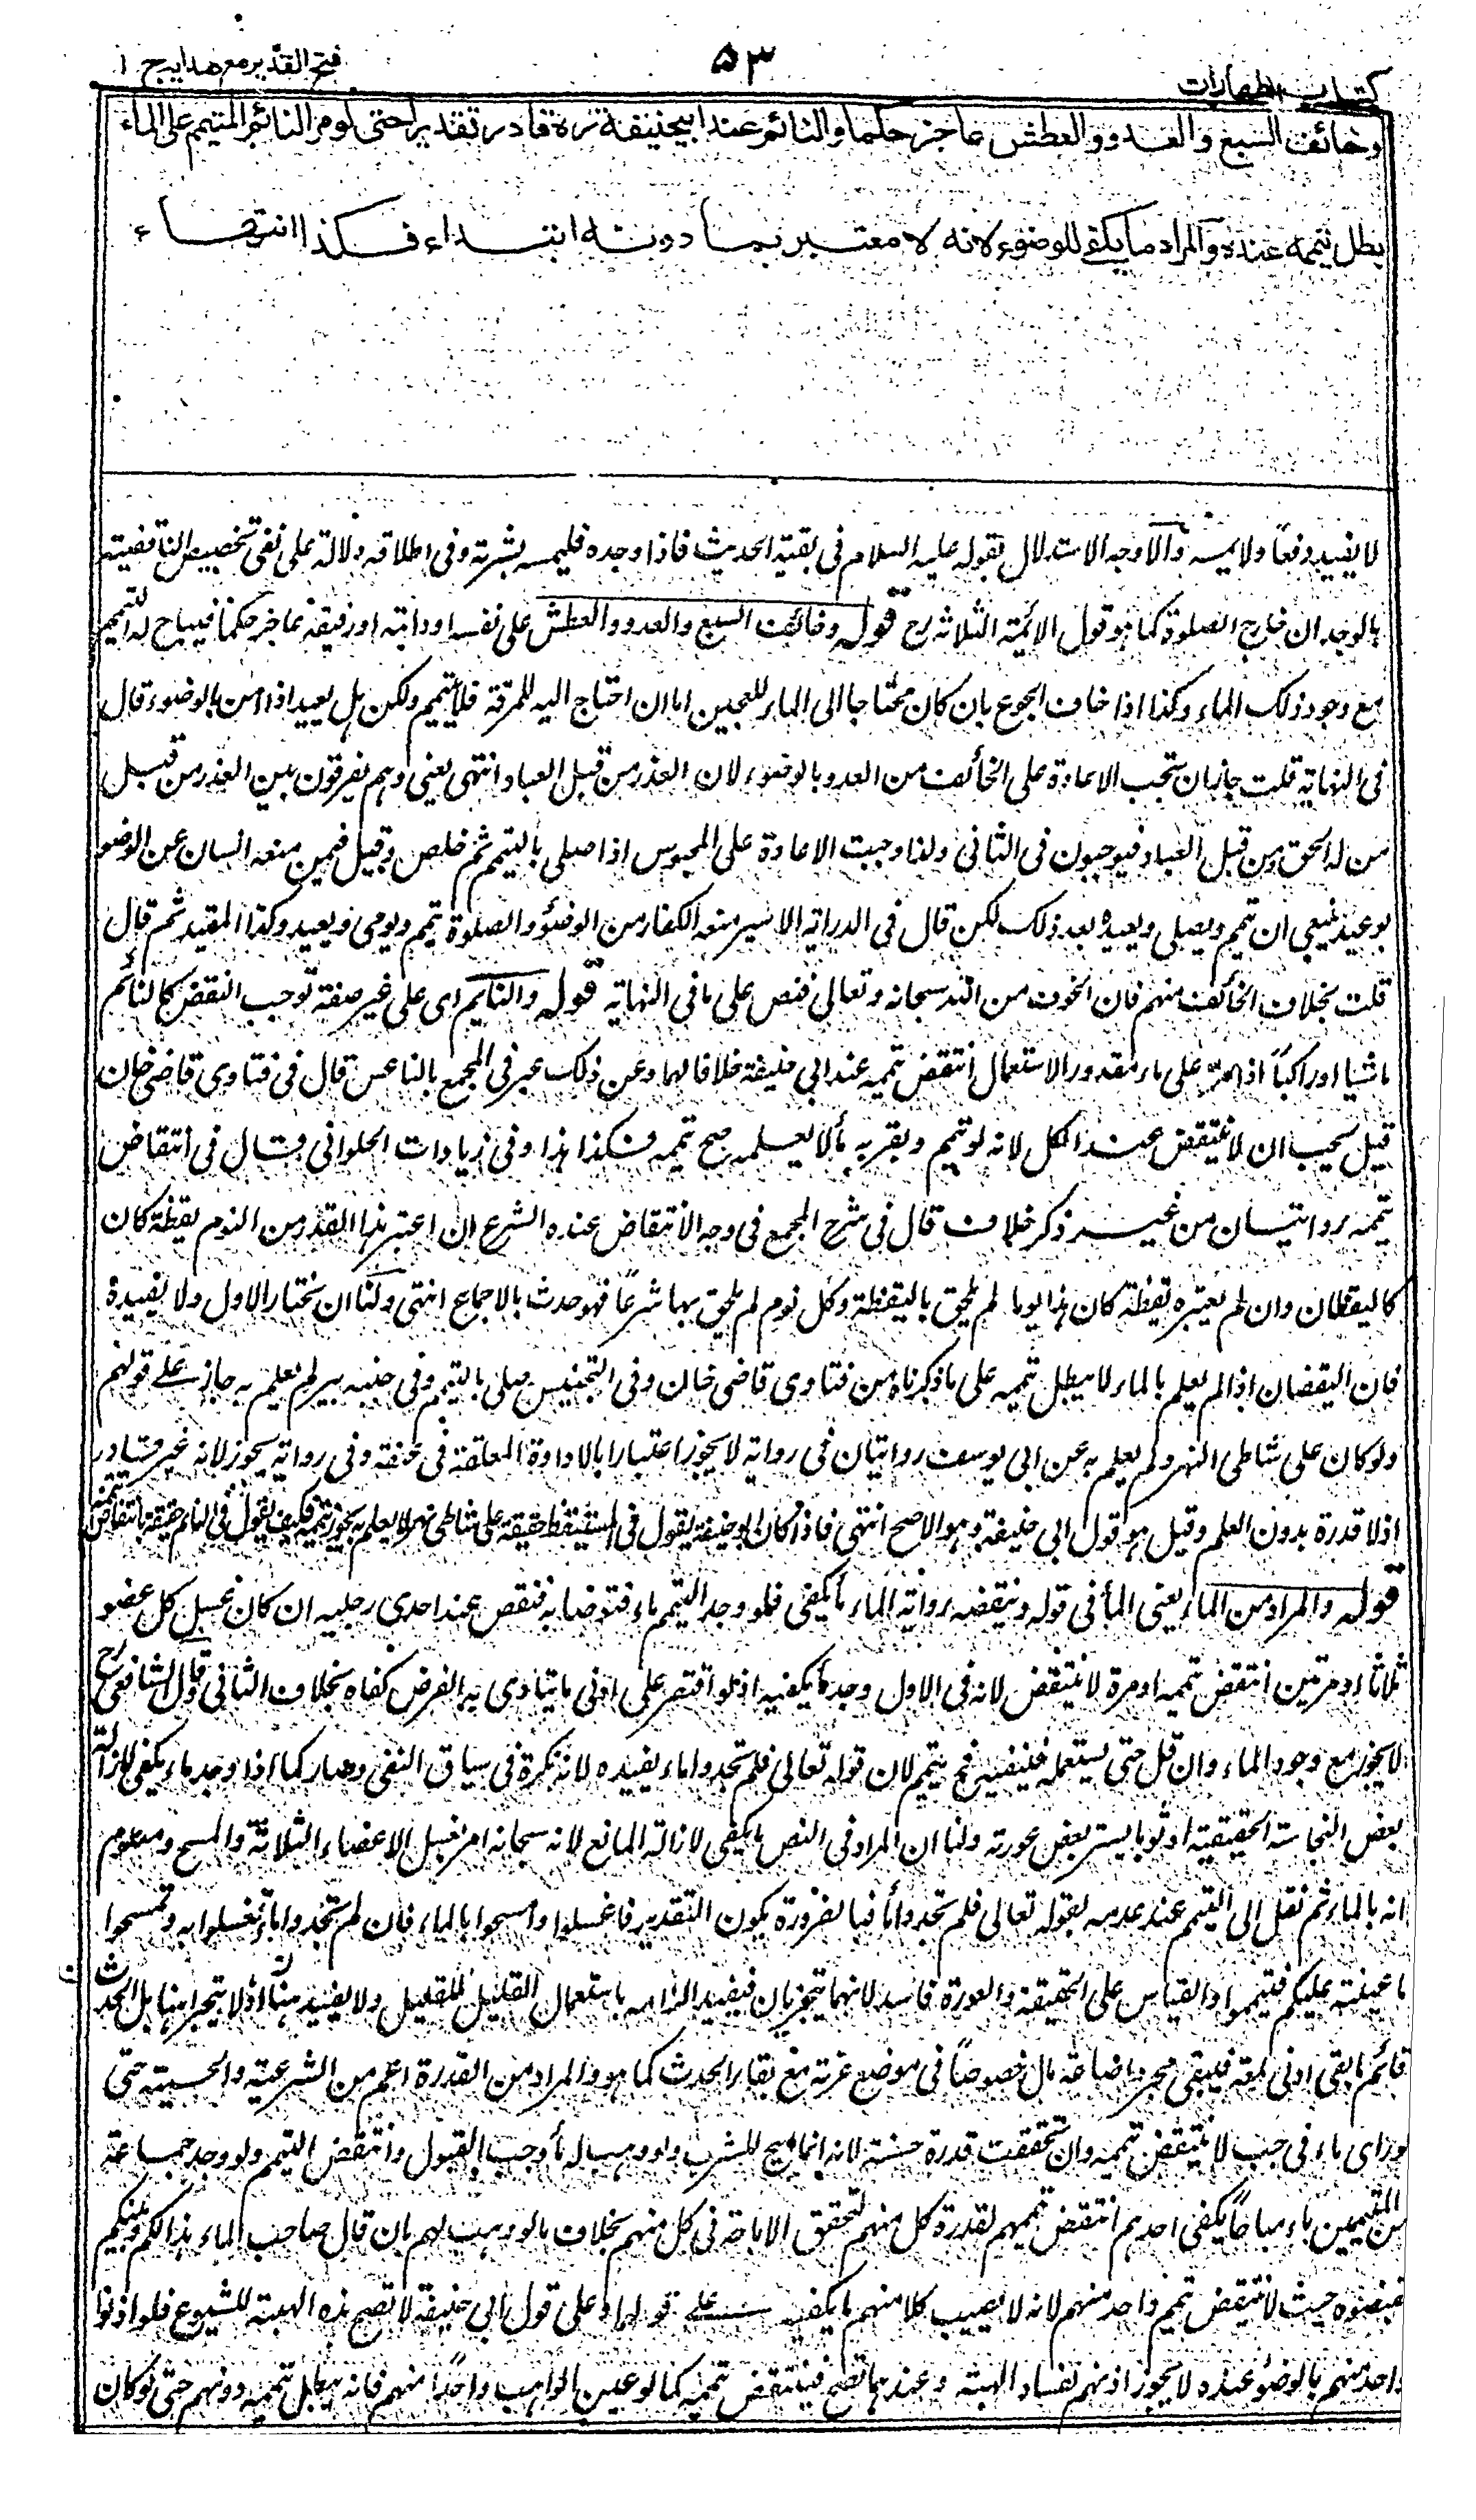 كتاب الطهارات
٥٣
فتح القدير مع هدايه ج ١
وخائف السبع والعدو والعطش عاجز حكما والنائم عند ابيحنيفة ره قادر تقديرا حتى لو مر النائم المتيمم على الماء
بطل تيممه عنده والمراد ما يكفى للوضوء لانه لا معتبر بما دونه ابتداء فكذا انتهاء
لا يفيد دفعاً ولا يمسه والاوجه الاستدلال بقوله عليه السلام فى بقية الحديث فاذا وجده فليمسه بشرته وفى اطلاقه دلالة على نفى تخصيص الناقضية
بالوجدان خارج الصلوة كما هو قول الائمة الثلاثة رح قوله وخائف السبع والعدو والعطش على نفسه او دابته او رفيقه عاجز حكما فيباح له التيمم
مع وجود ذلك الماء وكذا اذا خاف الجوع بان كان محتاجا الى الماء للعجين اما ان احتاج اليه للمرقة فلا يتيمم ولكن هل يعيد اذا امن بالوضوء قال
فى النهاية قلت جاز ان تجب الاعادة على الخائف من العدو بالوضوء لان العذر من قبل العباد انتهى يعنى وهم يفرقون بين العذر من قبل
من له الحق ومن قبل العباد فيوجبون فى الثانى ولذا وجبت الاعادة على المحبوس اذا صلى بالتيمم ثم خلص وقيل فيمن منعه انسان عن الوضوء
بوعيد ينبغى ان يتيمم ويصلى ويعيد بعد ذلك لكن قال فى الدراية الاسير منعه الكفار من الوضوء والصلوة يتيمم ويومى ويعيد وكذا المقيد ثم قال
قلت بخلاف الخائف منهم فان الخوف من الله سبحانه وتعالى فنص على ما فى النهاية قوله والنائم اى على غير صفة توجب النقض كالنائم
ماشيا او راكبا اذا مر على ماء مقدور الاستعمال انتقض تيممه عند ابى حنيفة خلافا لهما وعن ذلك عبر فى المجمع بالناعس قال فى فتاوى قاضى خان
قيل يجب ان لا ينتقض عند الكل لانه لو تيمم وبقربه ماء لا يعلمه صح تيممه فكذا هذا وفى زيادات الحلوانى قال فى انتقاض
تيممه روايتان من غير ذكر خلاف قال فى شرح المجمع فى وجه الانتقاض عنده الشرع ان اعتبر هذا القدر من النوم يقظة كان
كاليقظان وان لم يعتبره يقظة كان هذا نوما لم يلحق باليقظة وكل نوم لم يلحق بها شرعا فهو حدث بالاجماع انتهى ولنا ان نختار الاول ولا يفيده
فان اليقظان اذا لم يعلم بالماء لا يبطل تيممه على ما ذكرناه من فتاوى قاضى خان وفى التجنيس صلى بالتيمم وفى جنبه بير لم يعلم به جاز على قولهم
ولو كان على شاطى النهر ولم يعلم به عن ابى يوسف روايتان فى رواية لا يجوز اعتبارا بالاداوة المعلقة فى عنقه وفى رواية يجوز لانه غير قادر
اذ لا قدرة بدون العلم وقيل هو قول ابى حنيفة وهو الاصح انتهى فاذا كان ابو حنيفة يقول فى المستيقظ حقيقة على شاطى نهر لا يعلم به يجوز تيممه فكيف يقول فى النائم حقيقة بانتقاض تيممه
قوله والمراد من الماء يعنى الماء فى قوله وينقضه رواية الماء ما يكفى فلو وجد المتيمم ماء فتوضا به فنقص عند احدى رجليه ان كان غسل كل عضو
ثلاثا او مرتين انتقض تيممه او مرة لا ينتقض لانه فى الاول وجد ما يكفيه اذ لو اقتصر على ادنى ما يتادى به الفرض كفاه بخلاف الثانى وقال الشافعى رح
لا يجوز مع وجود الماء وان قل حتى يستعمله فيفنيه فح يتيمم لان قوله تعالى فلم تجدوا ماء يفيده لانه نكرة فى سياق النفى وصار كما اذا وجد ماء يكفى لازالة
بعض النجاسة الحقيقية او ثوبا يستر بعض عورته ولنا ان المراد فى النص ما يكفى لازالة المانع لانه سبحانه امر بغسل الاعضاء الثلاثة والمسح ومعلوم
انه بالماء ثم نقل الى التيمم عند عدمه بقوله تعالى فلم تجدوا ماء فبالضرورة يكون التقدير فاغسلوا وامسحوا بالماء فان لم تجدوا ماء تغسلوا به وتمسحوا
ما عينته عليكم فتيمموا والقياس على الحقيقة والعورة فاسد لانهما يتجزيان فيفيد الزامه باستعمال القليل للتقليل ولا يفيد هنا اذ لا يتجزا هنا بل الحدث
قائم ما بقى ادنى لمعة فيبقى مجرد اضاعة مال خصوصا فى موضع عزته مع بقاء الحدث كما هو والمراد من القدرة اعم من الشرعية والحسية حتى
لو راى ماء فى حب لا ينتقض تيممه وان تحققت قدرة حسية لانه انما ابيح للشرب ولو وهب له ماء وجب القبول وانتقض التيمم ولو وجد جماعة
من المتيممين ماء مباحا يكفى احدهم انتقض تيممهم لقدرة كل منهم لتحقق الاباحة فى كل منهم بخلاف ما لو وهب لهم بان قال صاحب الماء هذا لكم او بينكم
فقبضوه حيث لا ينتقض تيمم واحد منهم لانه لا يصيب كلا منهم ما يكفيه على قولهما وعلى قول ابى حنيفة لا تصح هذه الهبة للشيوع فلو اذنوا
واحد منهم بالوضوء عنده لا يجوز اذنهم لفساد الهبة وعندهما تصح فينتقض تيممه كما لو عين الواهب واحدا منهم فانه يبطل تيممه دونهم حتى لو كان